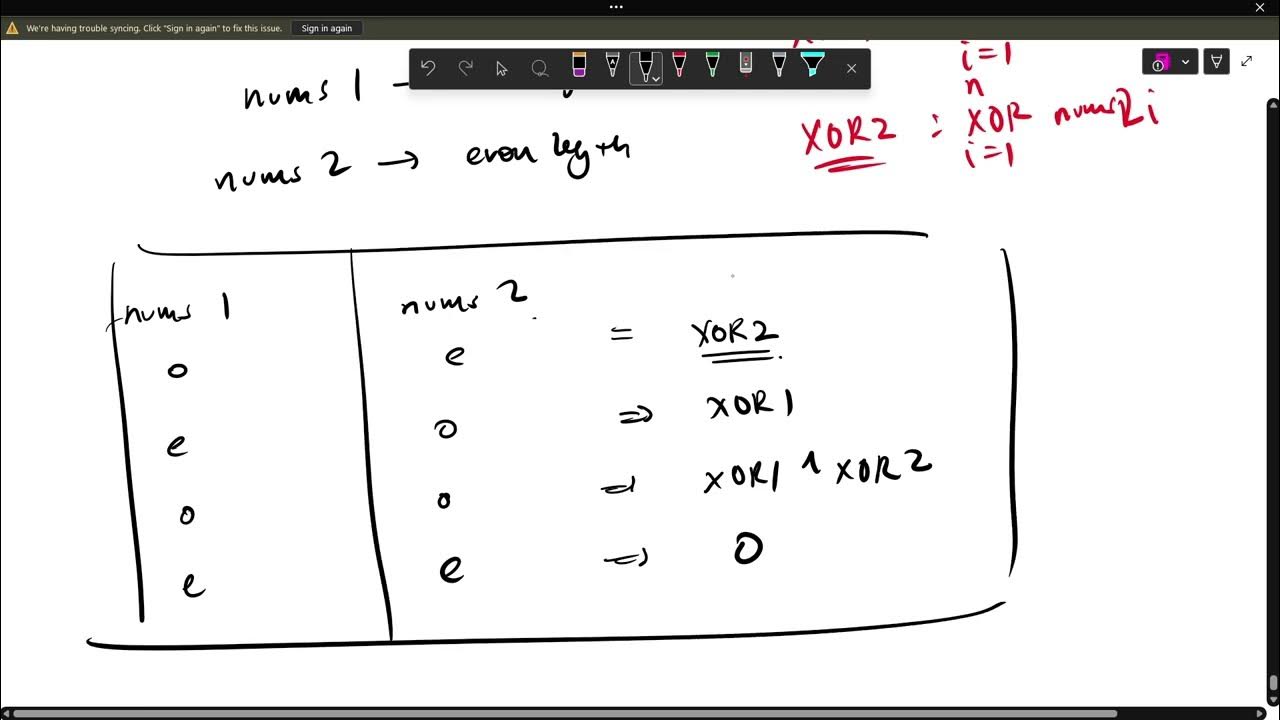 We're having trouble syncing. Click "Sign in again" to fix this issue. Sign in again
i=1
nums 1 -
n
XOR2 : XOR nums2i
i=1
nums 2 → even length
nums 1 nums 2
o e = XOR2
e o ⇒ XOR1
o o ⇒ XOR1 ^ XOR2
e e ⇒ 0